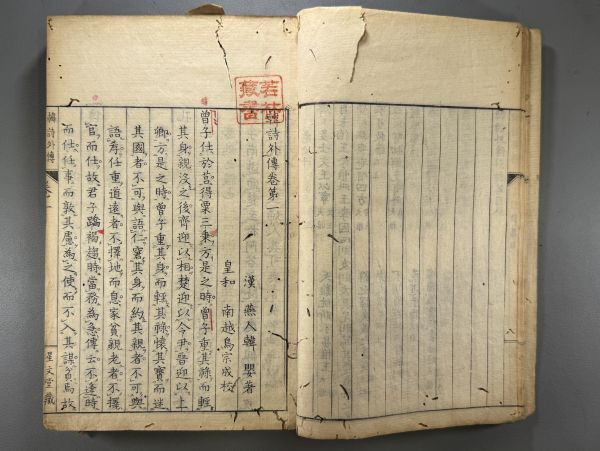 韓詩外傳卷第一
漢 燕人韓 嬰著
皇和 南越鳥宗成校
曾子仕於莒得粟三秉方是之時曾子重其祿而輕
其身親沒之後齊迎以相楚迎以令尹晉迎以上
卿方是之時曾子重其身而輕其祿懷其寶而迷
其國者不可與語仁窘其身而約其親者不可與
語孝任重道遠者不擇地而息家貧親老者不擇
官而仕故君子蹻褐趨時當務為急傳云不逢時
而仕任事而敦其慮為之使而不入其謀貧焉故
韓詩外傳
星文堂藏
若林
藏書